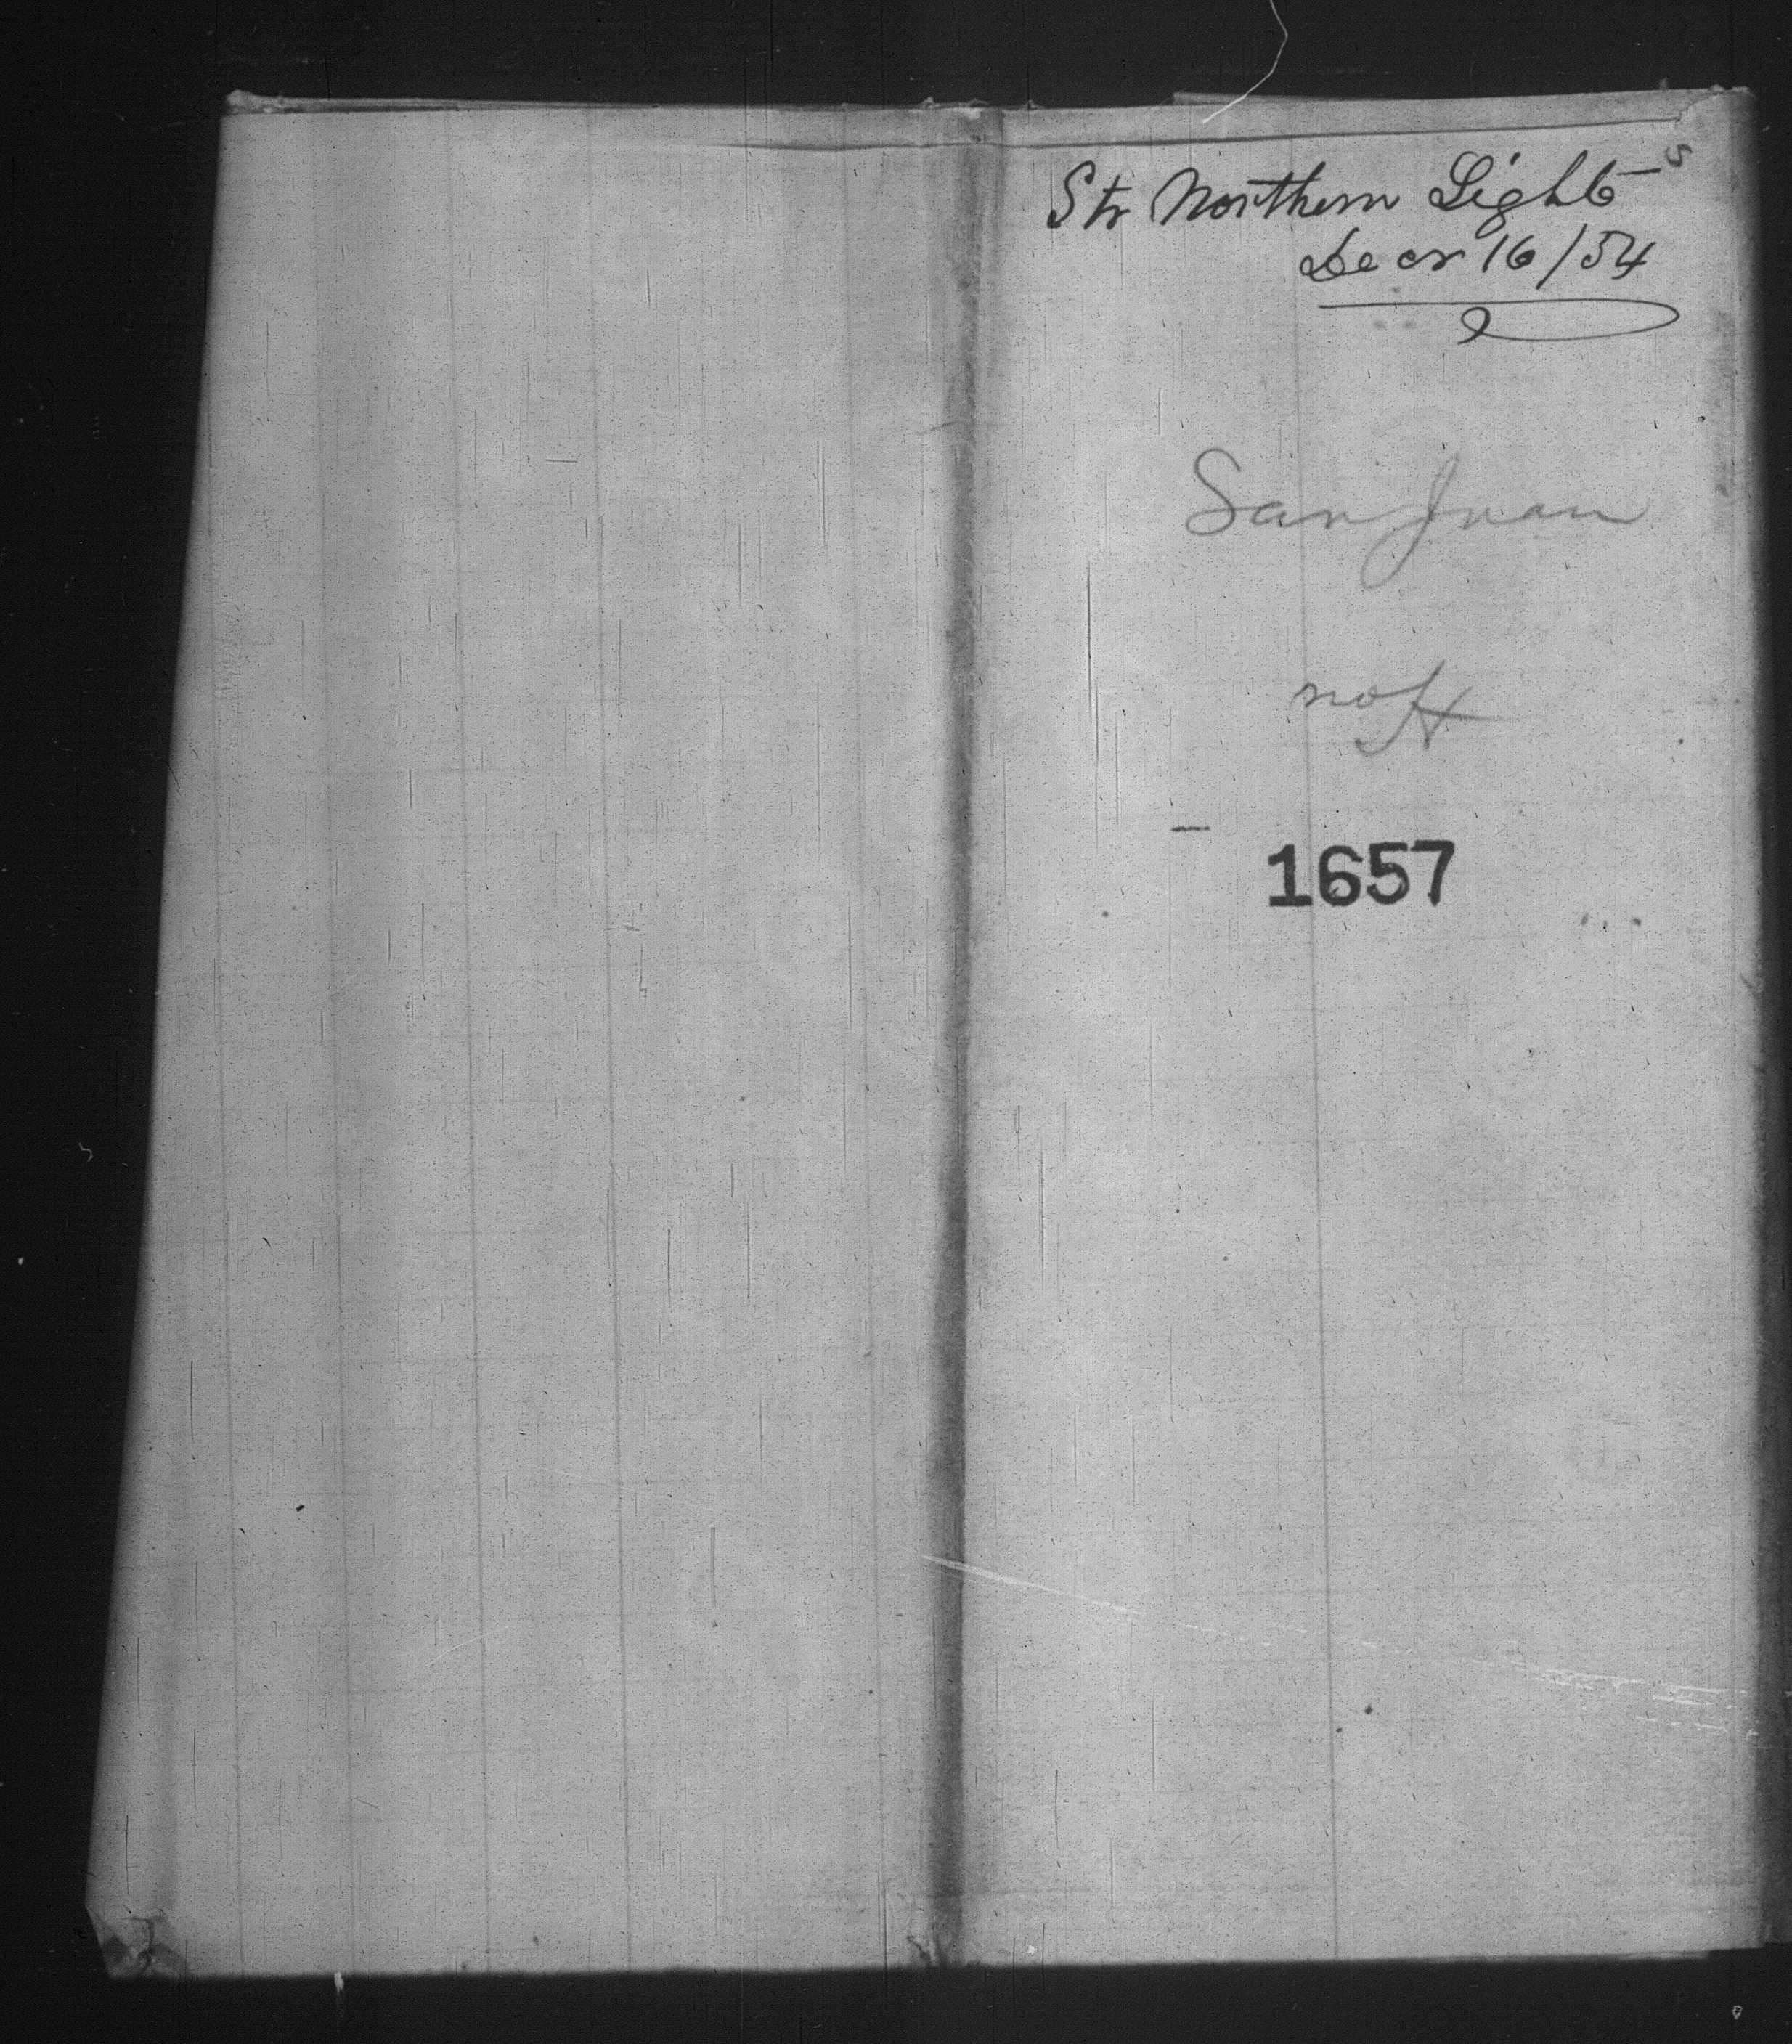 Str Northern Light
Decr 16/54
San Juan
1657